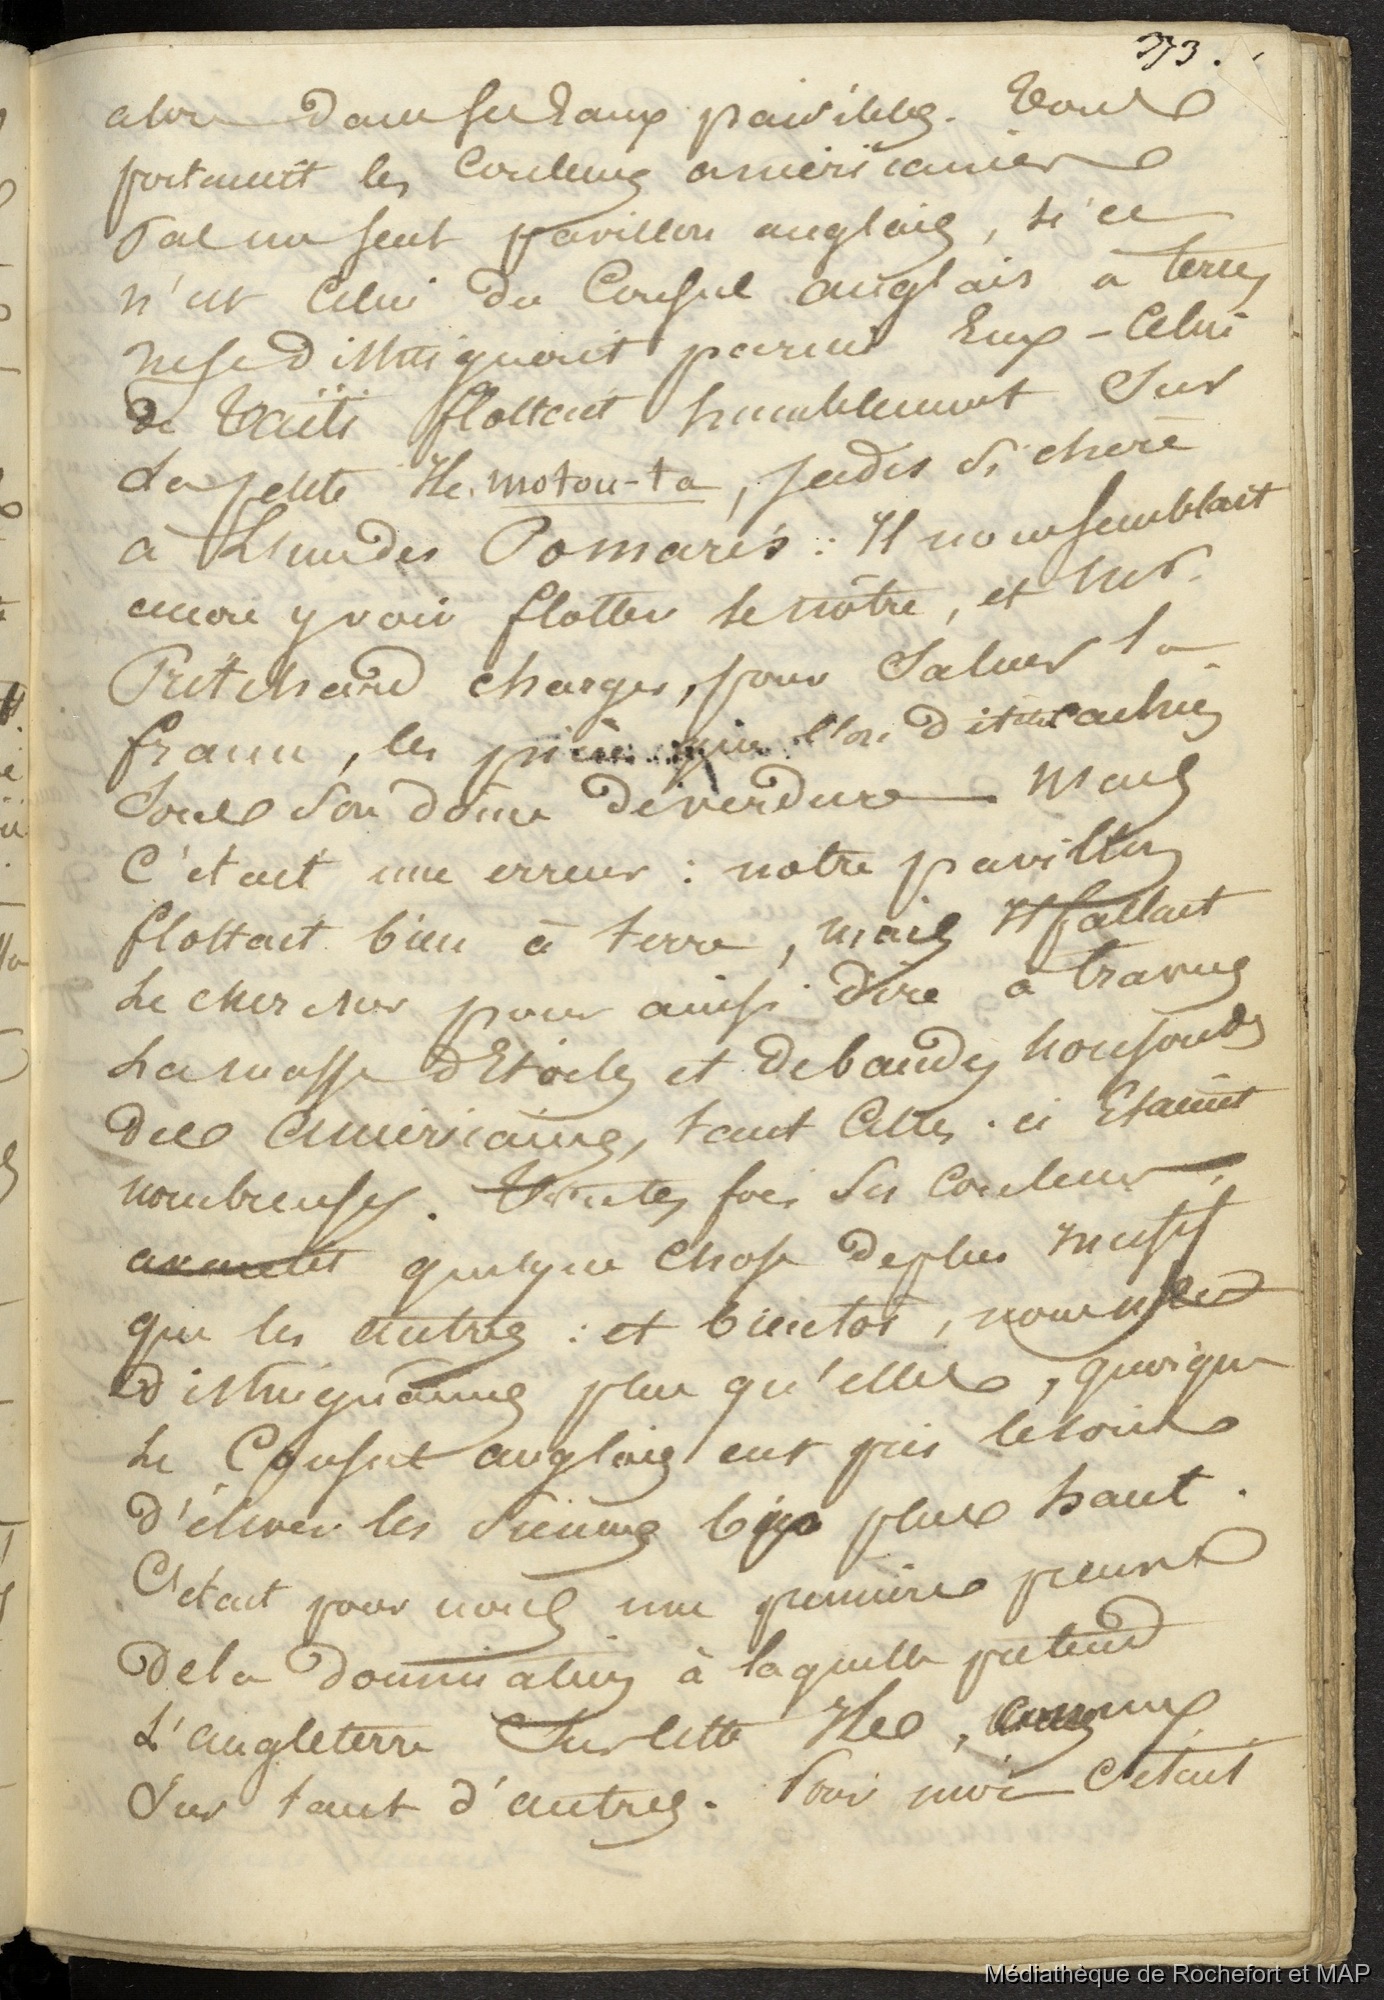 373.
alors dans ses Eaux paisibles. Tous
portaient les Couleurs américaines
Pas un seul pavillon anglais, si ce
n'est Celui du Consul anglais à terre,
ne se distinguait parmi Eux - Celui
de Taïti flottait humblement Sur
La petite Ile. motou-ta, jadis si chère
à des Pomarés : Il nous semblait
encore y voir flotter le nôtre, et Mr.
Pritchard charger, pour Saluer la
france, les pièces que l'on dit cachées
Sous Son dôme de verdure Mais
C'était une erreur : notre pavillon
flottait bien à terre, mais Il fallait
Le chercher pour ainsi dire à travers
La masse d'Etoiles et de bandes
des américains, tant Celles-ci Etaient
nombreuses. Toutes fois Ses Couleurs
avaient quelque Chose de plus
que les autres : et bientôt, nous n'en
distinguâmes plus qu'elles, quoique
Le Consul anglais eut pris le soin
d'élever les Siennes bien plus haut.
C'était pour nous une première preuve
De la Domination à laquelle prétend
L'angleterre Sur cette Ile, comme
Sur tant d'autres. Pour moi C'était
Médiathèque de Rochefort et MAP